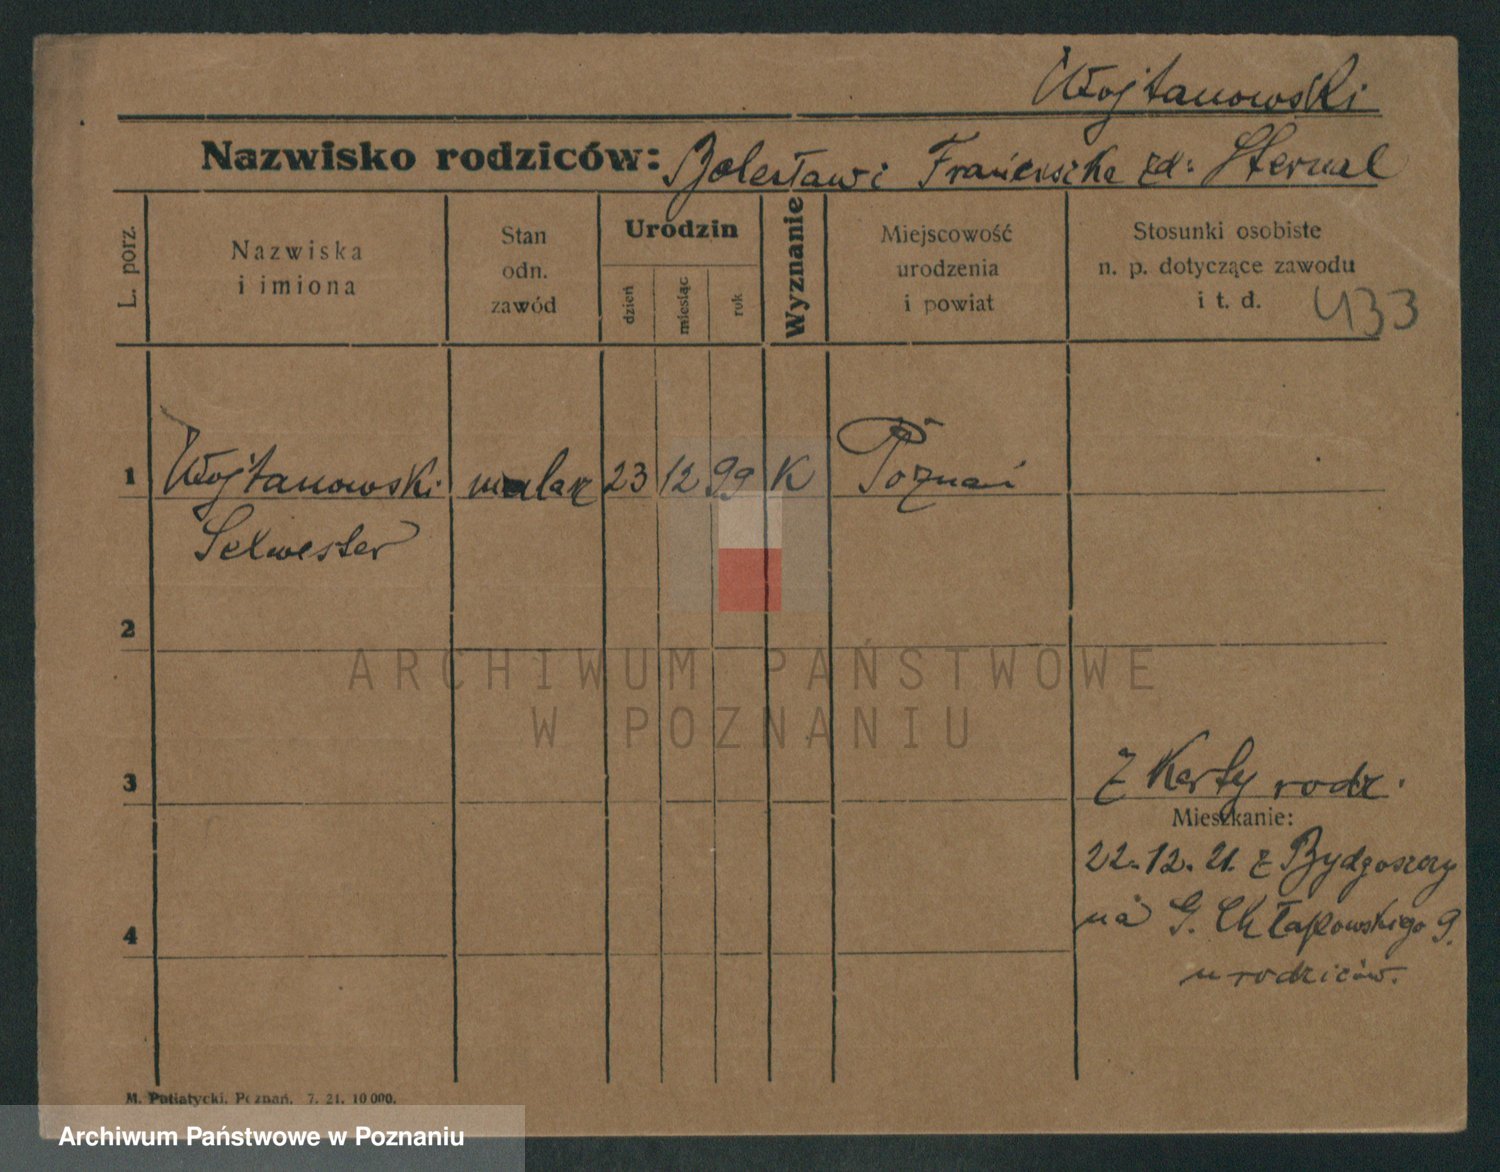 Wojtanowski
Nazwisko rodziców: Bolesław i Franciszka zd: Sternal
L. porz.
Nazwiska
i imiona
Stan
odn.
zawód
Urodzin
dzień
miesiąc
rok
Wyznanie
Miejscowość
urodzenia
i powiat
Stosunki osobiste
n. p. dotyczące zawodu
i t. d.
433
1 Wojtanowski malarz 23 12 99 K Poznań
Sylwester
2
ARCHIWUM PAŃSTWOWE
W POZNANIU
3
Z Karty rodz.
Mieszkanie:
22.12.21. z Bydgoszczy
na G. Chłapowskiego 9.
u rodziców.
4
M. Putiatycki, Poznań. 7. 21. 10 000.
Archiwum Państwowe w Poznaniu